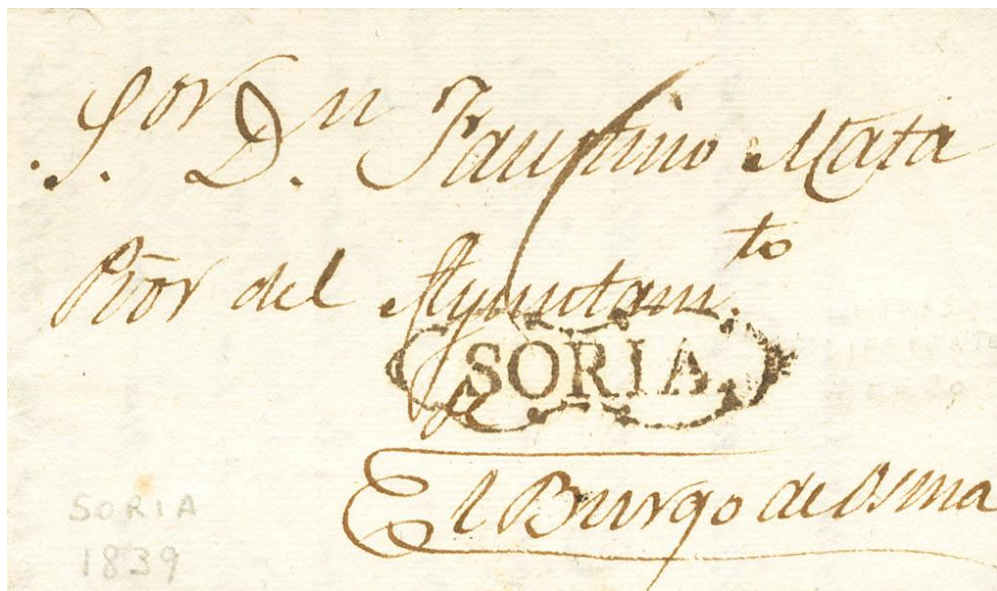 S.or D.n Faustino Mata
Pror del Ayuntam.to
SORIA
de
El Burgo de Osma
SORIA
1839